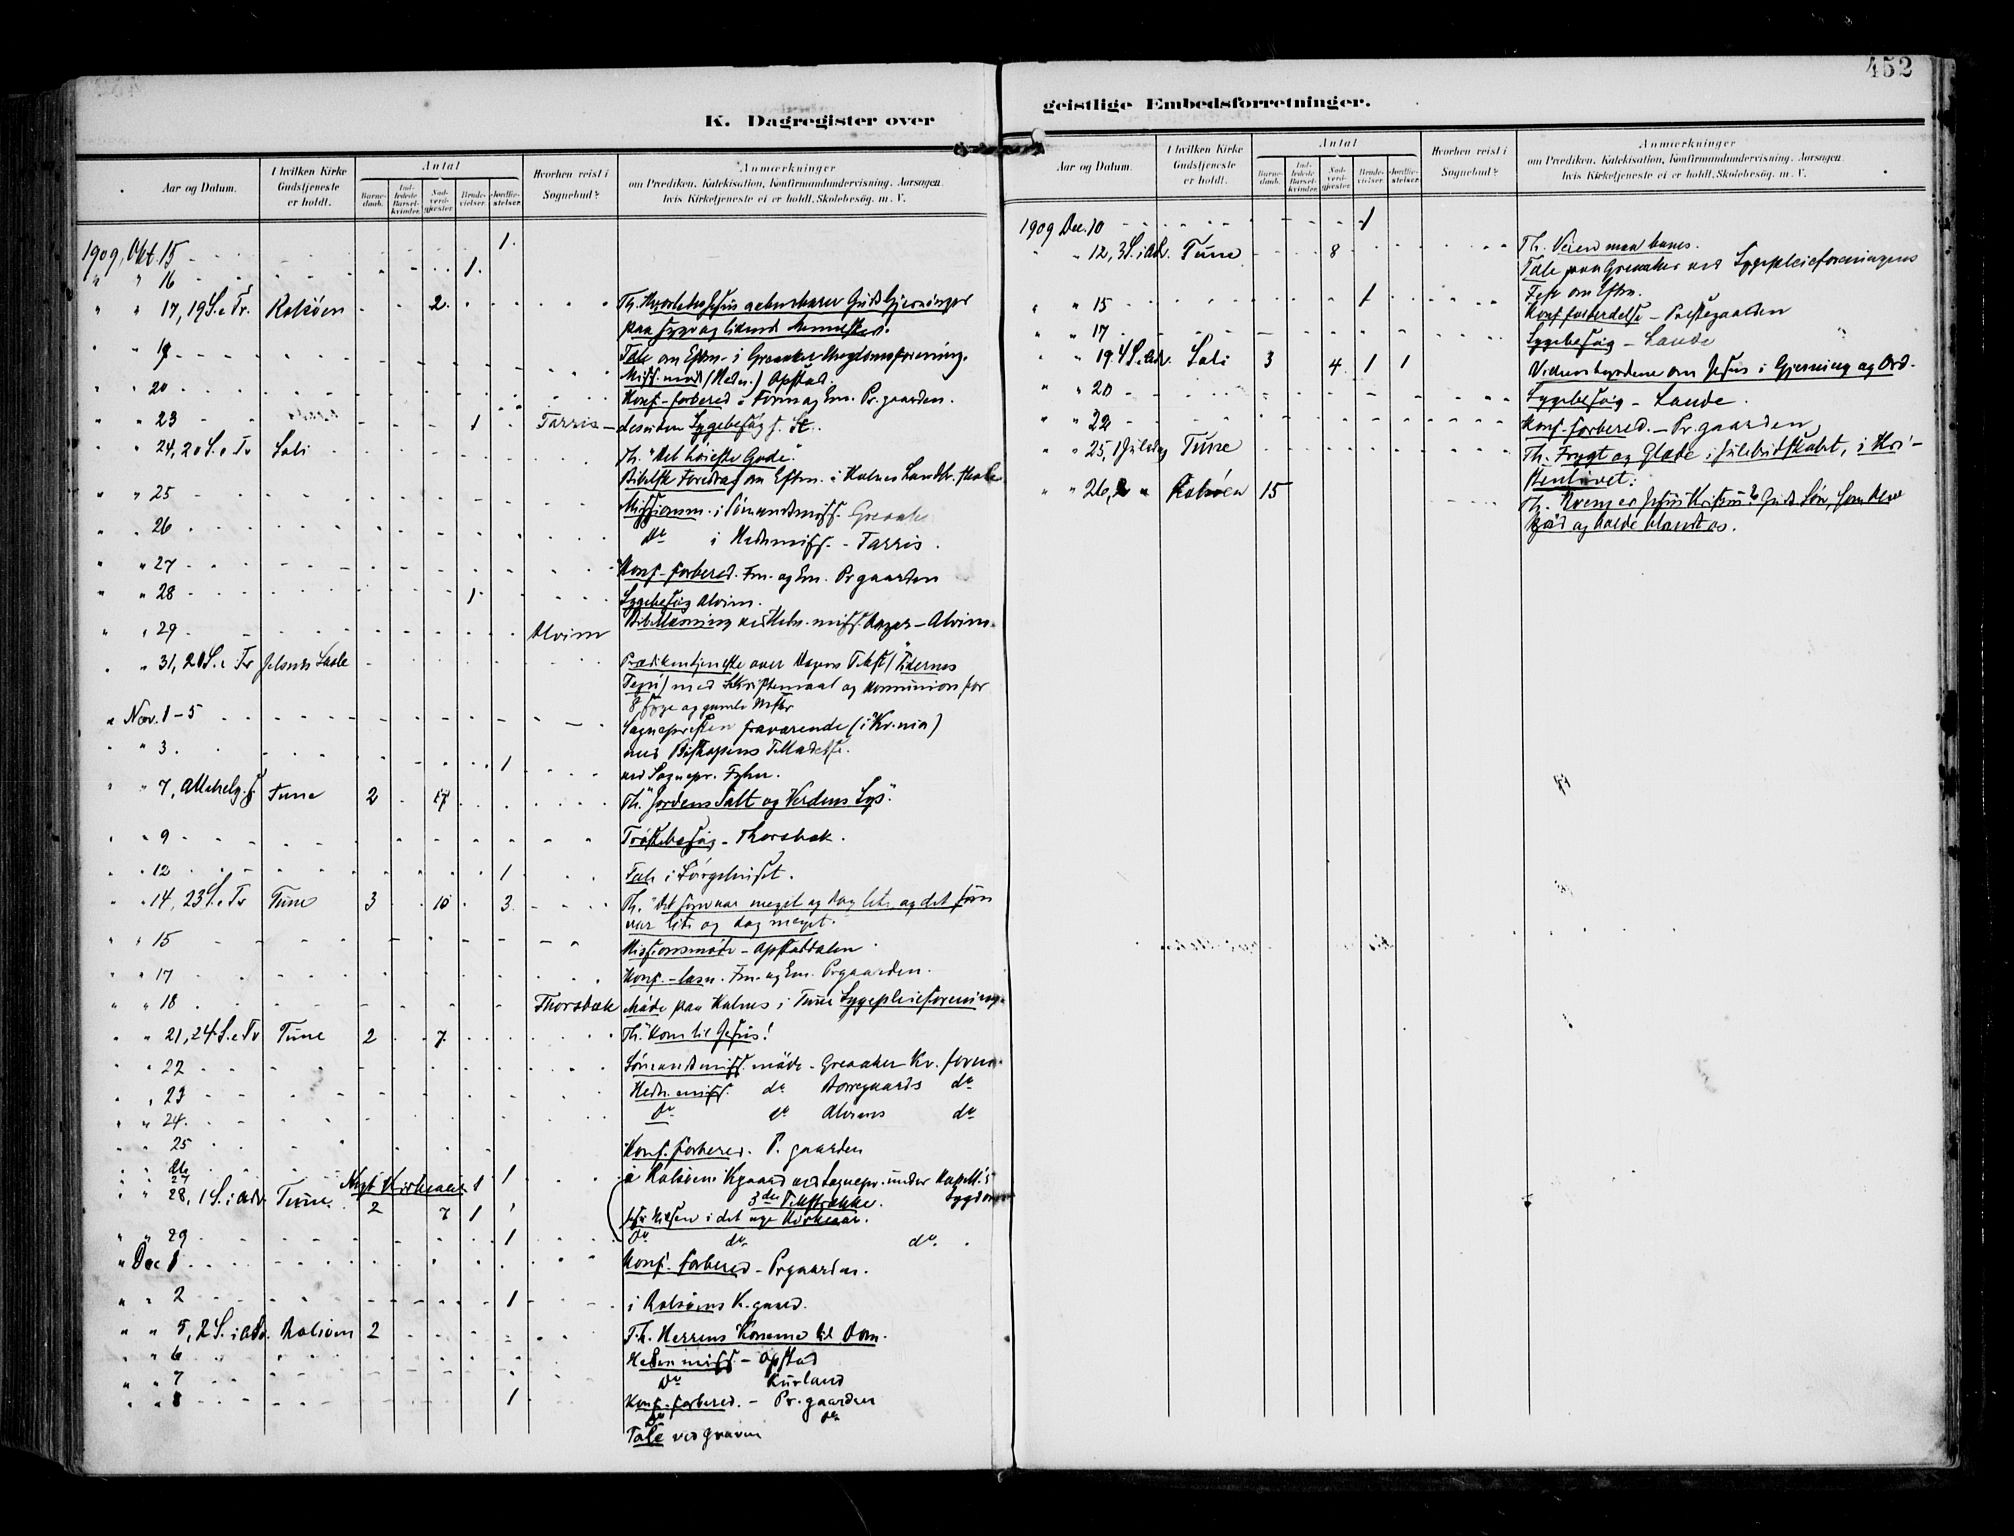 452
K. Dagregister over
geistlige Embedsforretninger.
Aar og Datum.
I hvilken Kirke Gudstjeneste er holdt.
Antal
Barnedaab.
Indledede Barselkvinder.
Nadverdgjester.
Brudevielser.
Jordfæstelser.
Hvorhen reist i Sognebud?
Anmærkninger
om Prædiken, Katekisation, Konfirmandundervisning. Aarsagen,
hvis Kirketjeneste ei er holdt. Skolebesøg. m. V.
1909, Okt. 15 1
" " 16 1
" " 17, 19 S. e Tr. Rolsøen 2 Th. Hvorledes Jesus aabenbarer Guds Gjerninger
paa syge og lidende Mennesker.
" " 19 Tale om Eftm. i Greaaker Ungdomsforening.
Miss. møde (Hedn.) Opstad.
" " 20 Konf.-forbered. i Form. og Em. Pr. gaarden.
" " 23 1 Tarris desuden Sygebesøg s. St.
" " 24, 20 S. e Tr Soli Th. "Det høieste Gode."
Bibelsk Foredrag om Eftm. i Kalnes Landbr. skole
" " 25 Missionsm. i Sømandsmiss. Greaaker
" " 26 Do i Hedn miss. - Tarris.
" " 27 Konf.-forbered. Fm. og Em. Prgaarden
" " 28 1 Sygebesøg Alvim.
" " 29 Alvim Bibellæsning ved Hedn. miss. - Alvim.
" " 31, 21 S. e Tr Prædikentjeneste over Dagens Tekst
med Skriftemaal og Kommunion for
8 syge og gamle
" Nov. 1-5 Sognepresten fraværende (i Kr.nia)
med Biskopens Tilladelse.
" " 3. 1 ved Sognepr.
" " 7, Allehelg. s. Tune 2 17 Th. "Jordens Salt og Verdens Lys".
" " 9 Trøstebesøg - Thorsbæk.
" " 12 1 Tale i Sørgehuset.
" " 14, 23 S. e Tr Tune 3 10 3 Th. "Det som var meget og dog lite, og det som
var lite og dog meget.
" " 15 Missionsmøte - Opstaddalen
" " 17 Konf.-læsn. Fm. og Em. Prgaarden.
" " 18 Thorsbæk Møde paa Kalnes i Tune Sygepleieforening.
" " 21, 24 S. e Tr Tune 2 7 Th. "Kom til Jesus!
" " 22 Sømandsmiss. møde - Greaaker Kv. foren.
" " 23 Hedn. miss. do Borregaards do
" " 24. Do do Alvims do
" " 25 Konf. forbered. P. gaarden
" " 27 1 1 i Rolsøens Kgaard ved Sognepr. under Kapell.s Sygdom
Nyt Kirkeaar 3die Tekstrække.
" " 28, 1 S. i Adv. Tune. 2 7 1 1 i det nye Kirkeaar.
" " 29 1 Do do do.
" Dec 1 Konf. forbered - Prgaarden.
" " 2 1 i Rolsøens K. gaard.
" " 5, 2 S. i Adv. Rolsøen 2 Th. Herrens Komme til Dom.
" " 6 Heden miss. - Opstad
" " 7 Do Kurland
" " 8 1 Konf. forbered. - Pr. gaarden
Do do
Tale ved graven
Aar og Datum.
I hvilken Kirke Gudstjeneste er holdt.
Antal
Barnedaab.
Indledede Barselkvinder.
Nadverdgjester.
Brudevielser.
Jordfæstelser.
Hvorhen reist i Sognebud?
Anmærkninger
om Prædiken, Katekisation, Konfirmandundervisning. Aarsagen,
hvis Kirketjeneste ei er holdt. Skolebesøg. m. V.
1909 Dec. 10 1
" " 12, 3 S. i Adv. Tune 8 Th. Veien maa banes.
Tale paa Greaaker ved Sygepleieforeningens
Fest om Eftm.
" " 15 1 Konf. forberedelse - Prestegaarden
" " 17 Sygebesøg - Lande
" " 19. 4 S. i Adv. Soli 3 4 1 1 Vidnesbyrdene om Jesus i Gjerning og Ord.
" " 20 Sygebesøg - Lande.
" " 22 Konf. forbered. - Pr. gaarden
" " 25, 1 Juledag Tune Th. Frygt og Glæde i Julebudskabet, i Kri-
stenlivet.
" " 26, 2 " Rolsøen 15 Th. Hvem er Jesus Kristus? Guds Søn, som blev
kjød og boede blandt os.